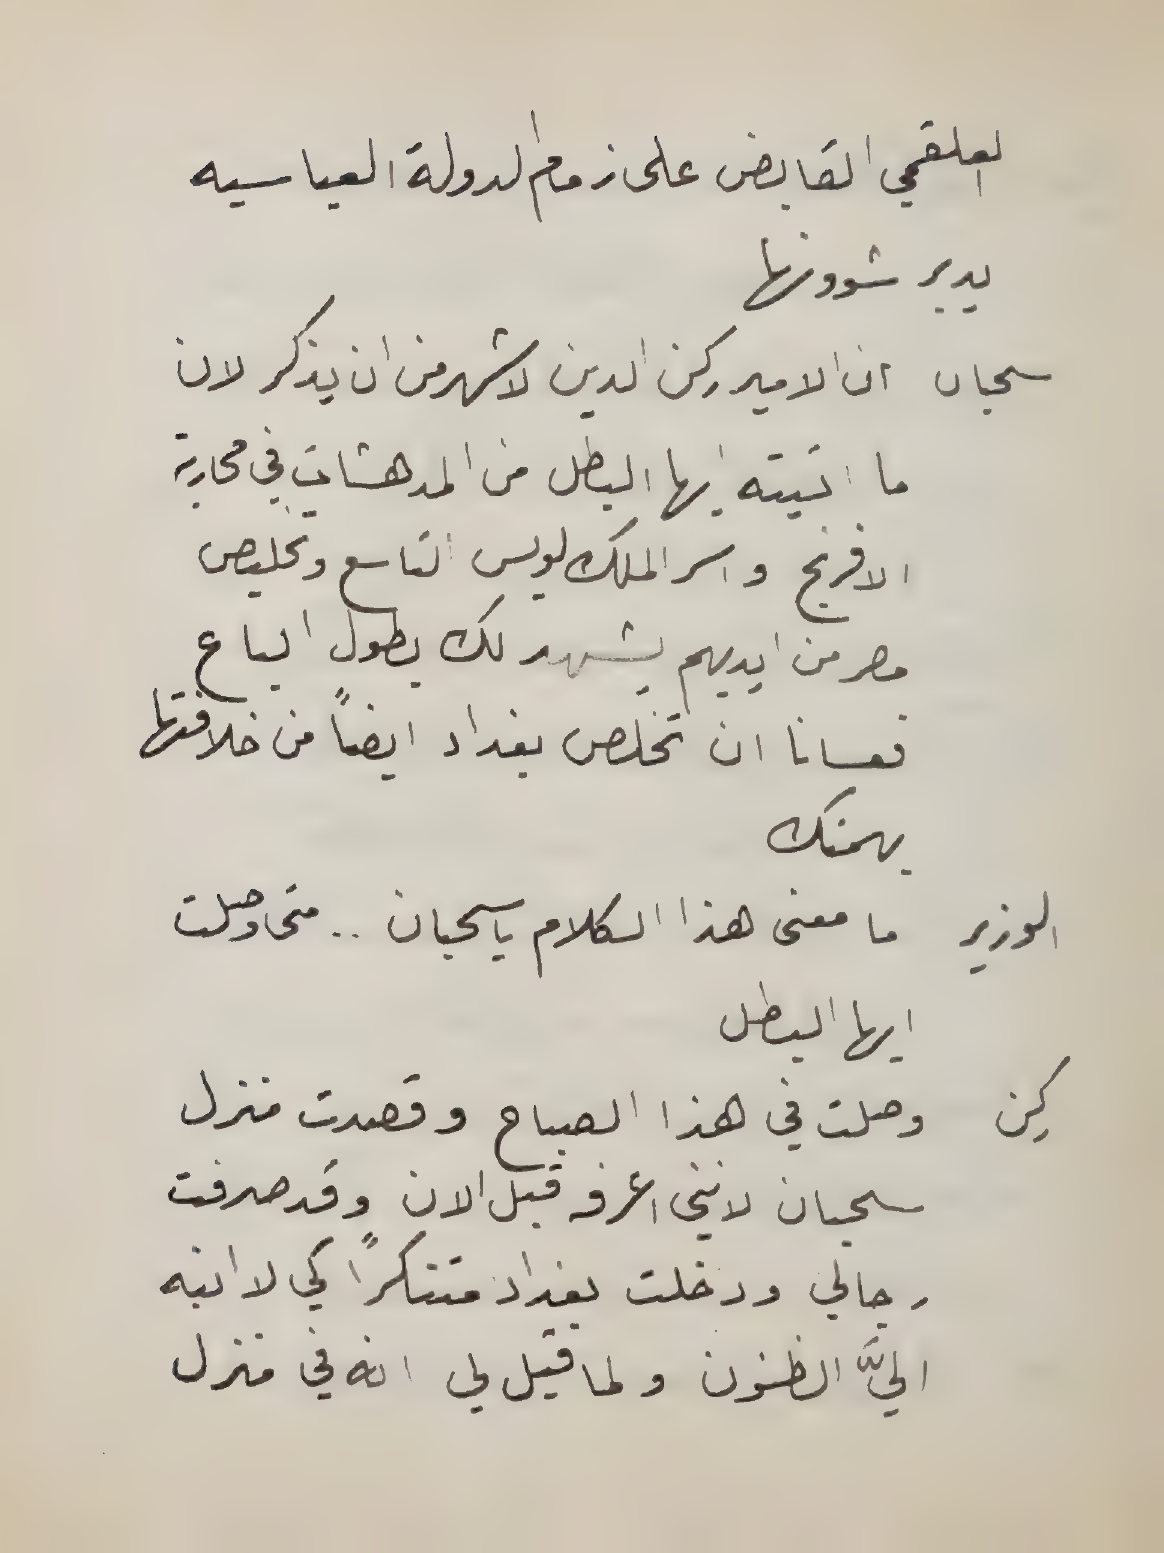 العلقمي القابض على زمام الدولة العباسيه
يدير شوونها
سحبان ان الامير ركن الدين لاشهر من ان يذكر لان
ما اتيته ايها البطل من المدهشات في محاربة
الافرنج واسر الملك لويس التاسع وتخليص
مصر من ايديهم يشهد لك بطول الباع
فعسانا ان تخلص بغداد ايضاً من خلافتها
بهمتك
الوزير ما معنى هذا الكلام ياسحبان .. متى وصلت
ايها البطل
ركن وصلت في هذا الصباح وقصدت منزل
سحبان لانني اعرفه قبل الان وقد صرفت
رجالي ودخلت بغداد متنكراً كي لا انبه
اليَّ الظنون ولما قيل لي انه في منزل